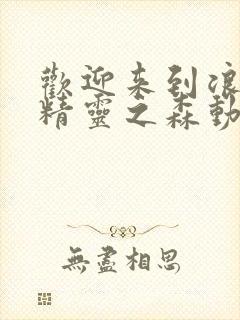 歡迎来到浪
精靈之森動
無盡相思